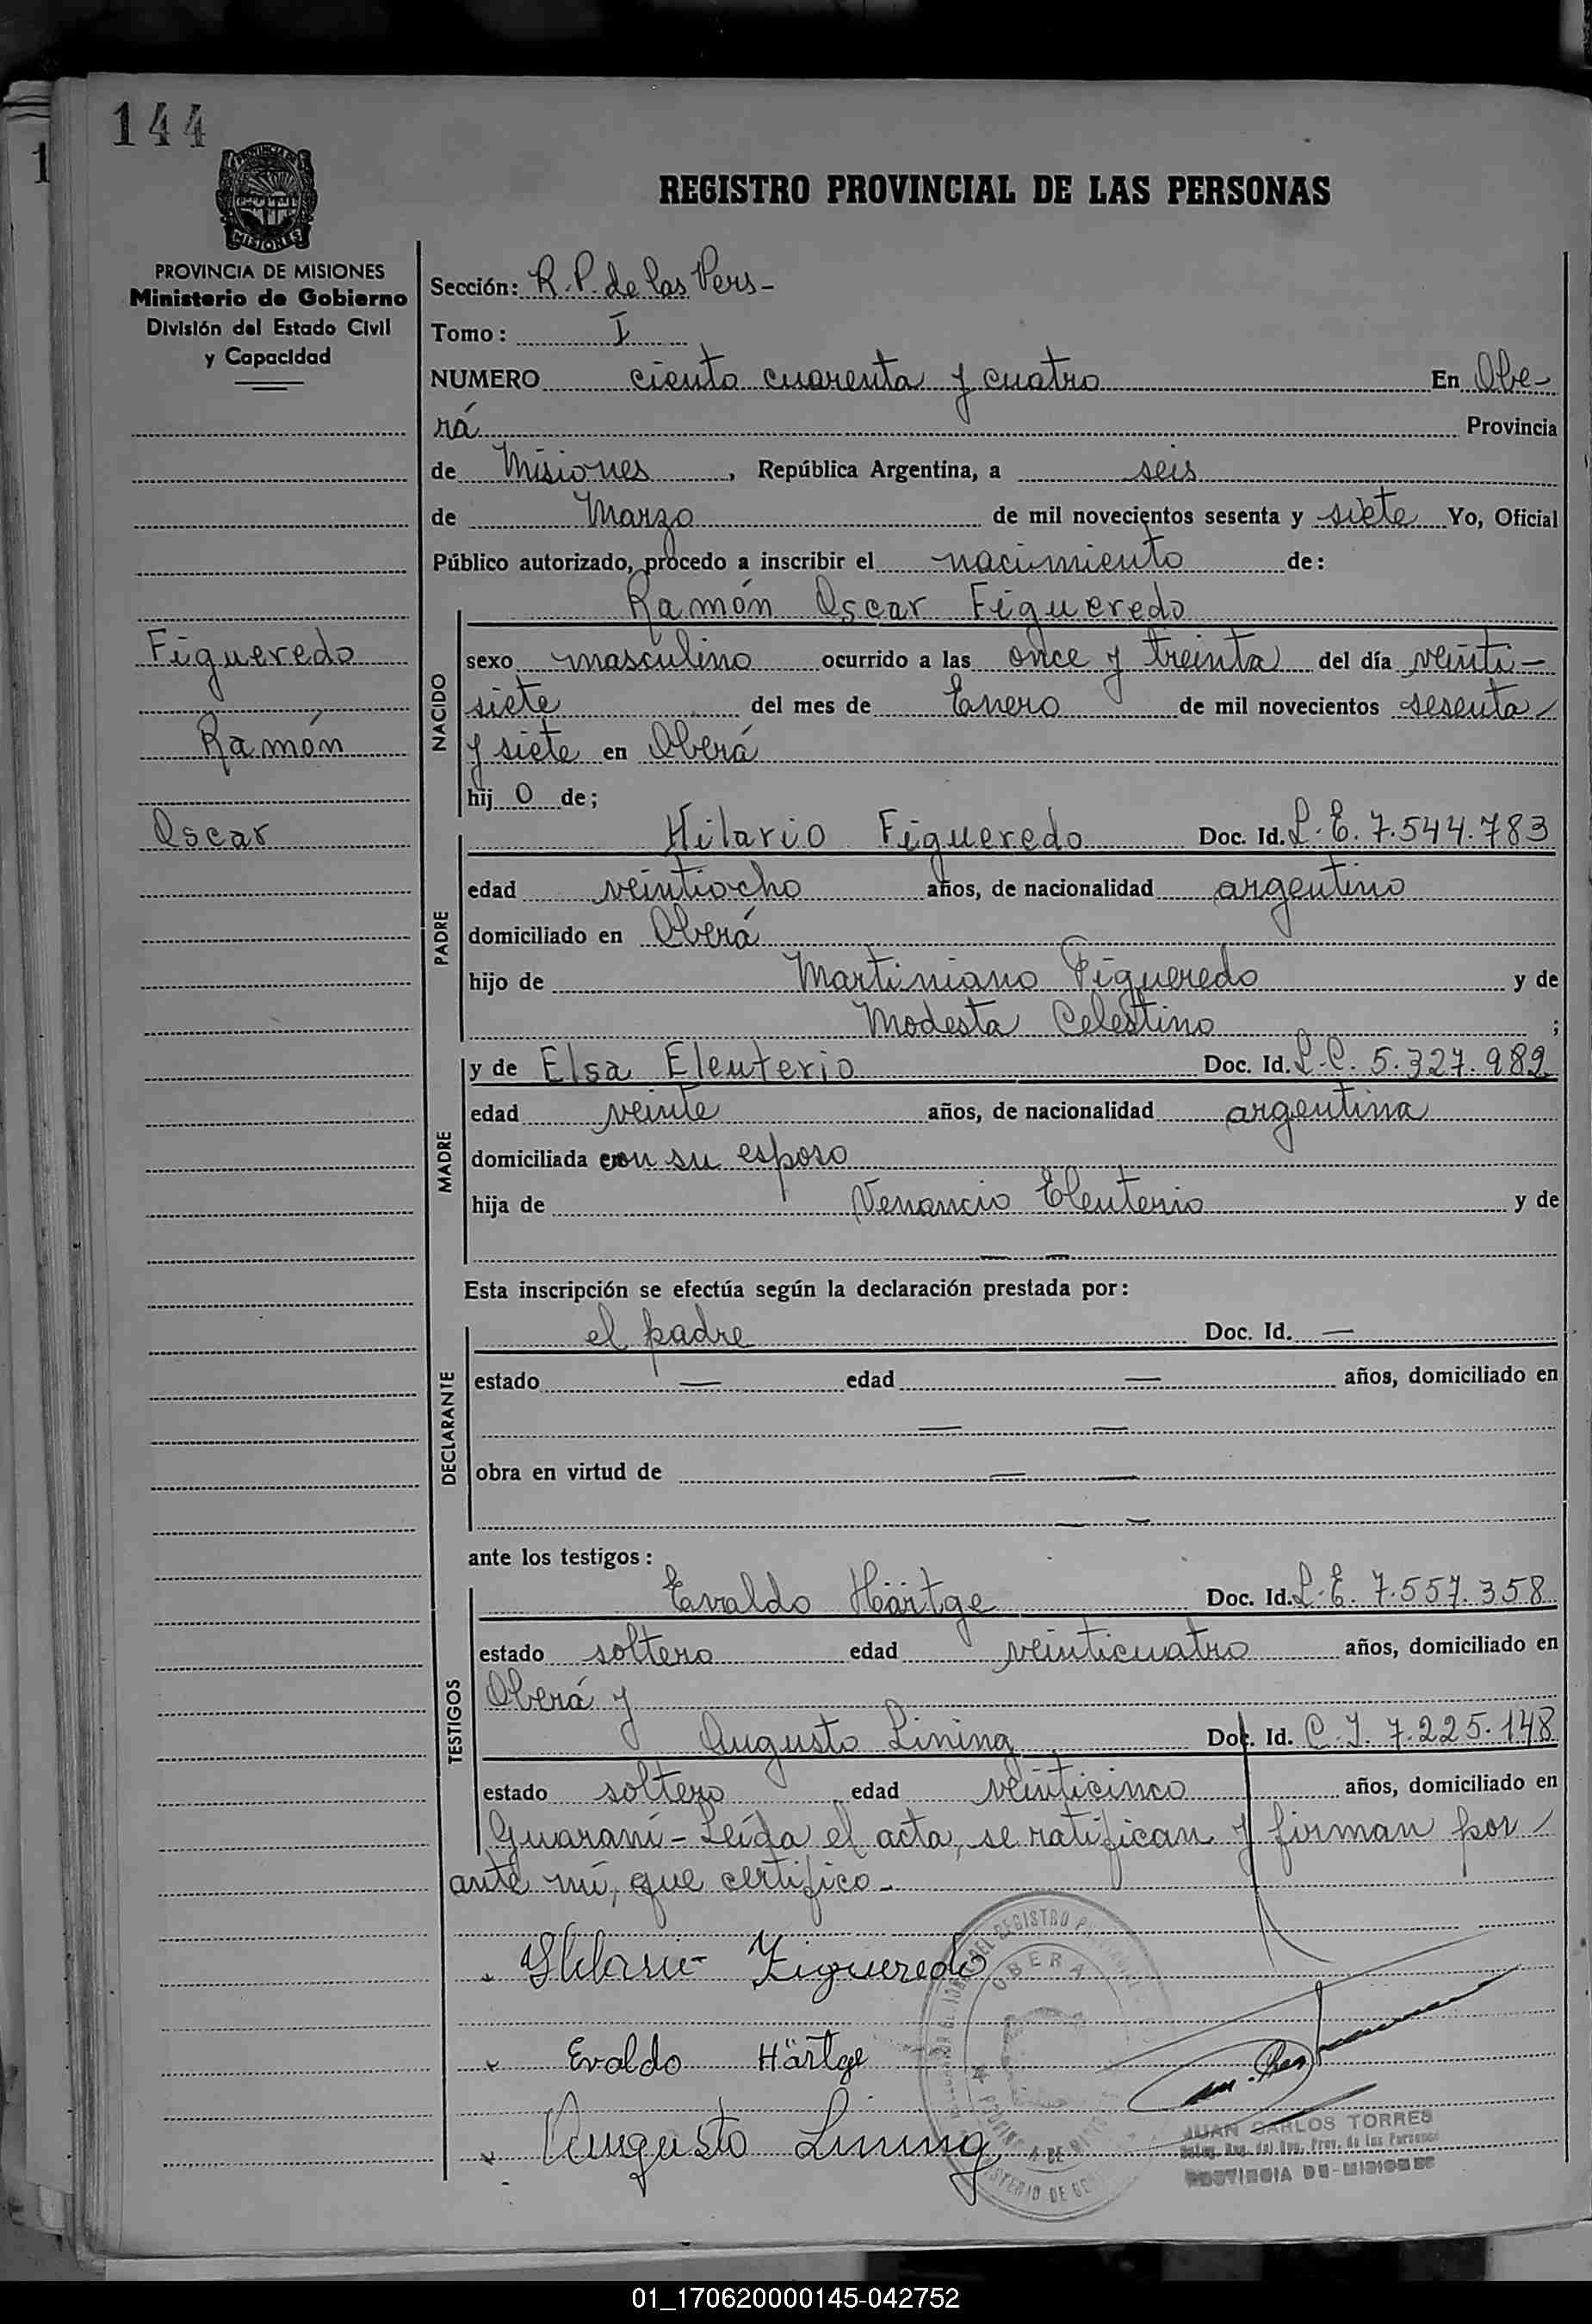 144
1
MISIONES
PROVINCIA DE MISIONES
Ministerio de Gobierno
División del Estado Civil
y Capacidad
Figueredo
Ramón
Oscar
REGISTRO PROVINCIAL DE LAS PERSONAS
Sección: R. P. de las Pers-
Tomo: I
NUMERO ciento cuarenta y cuatro En Obe-
rá Provincia
de Misiones, República Argentina, a seis
de Marzo de mil novecientos sesenta y siete Yo, Oficial
Público autorizado, procedo a inscribir el nacimiento de:
Ramón Oscar Figueredo
NACIDO
sexo masculino ocurrido a las once y treinta del día veinti-
siete del mes de Enero de mil novecientos sesenta
y siete en Oberá
hij o de;
PADRE
Hilario Figueredo Doc. Id. L. E. 7.544.783
edad veintiocho años, de nacionalidad argentino
domiciliado en Oberá
hijo de Martiniano Figueredo y de
Modesta Celestino ;
MADRE
y de Elsa Eleuterio Doc. Id. L. C. 5.327.982
edad veinte años, de nacionalidad argentina
domiciliada con su esposo
hija de Venancio Eleuterio y de
— —
Esta inscripción se efectúa según la declaración prestada por:
DECLARANTE
el padre Doc. Id. —
estado — edad — años, domiciliado en
— —
obra en virtud de — —
— —
ante los testigos:
TESTIGOS
Evaldo Härtge Doc. Id. L. E. 7.557.358
estado soltero edad veinticuatro años, domiciliado en
Oberá y
Augusto Lining Doc. Id. C. I. 7.225.148
estado soltero edad veinticinco años, domiciliado en
Guaraní - Leída el acta, se ratifican y firman por
ante mí, que certifico.-
Hilario Figueredo
Evaldo Härtge
Augusto Lining
DEL REGISTRO
OBERA
JUAN CARLOS TORRES
del Reg. Prov. de las Personas
PROVINCIA DE MISIONES
01_170620000145-042752